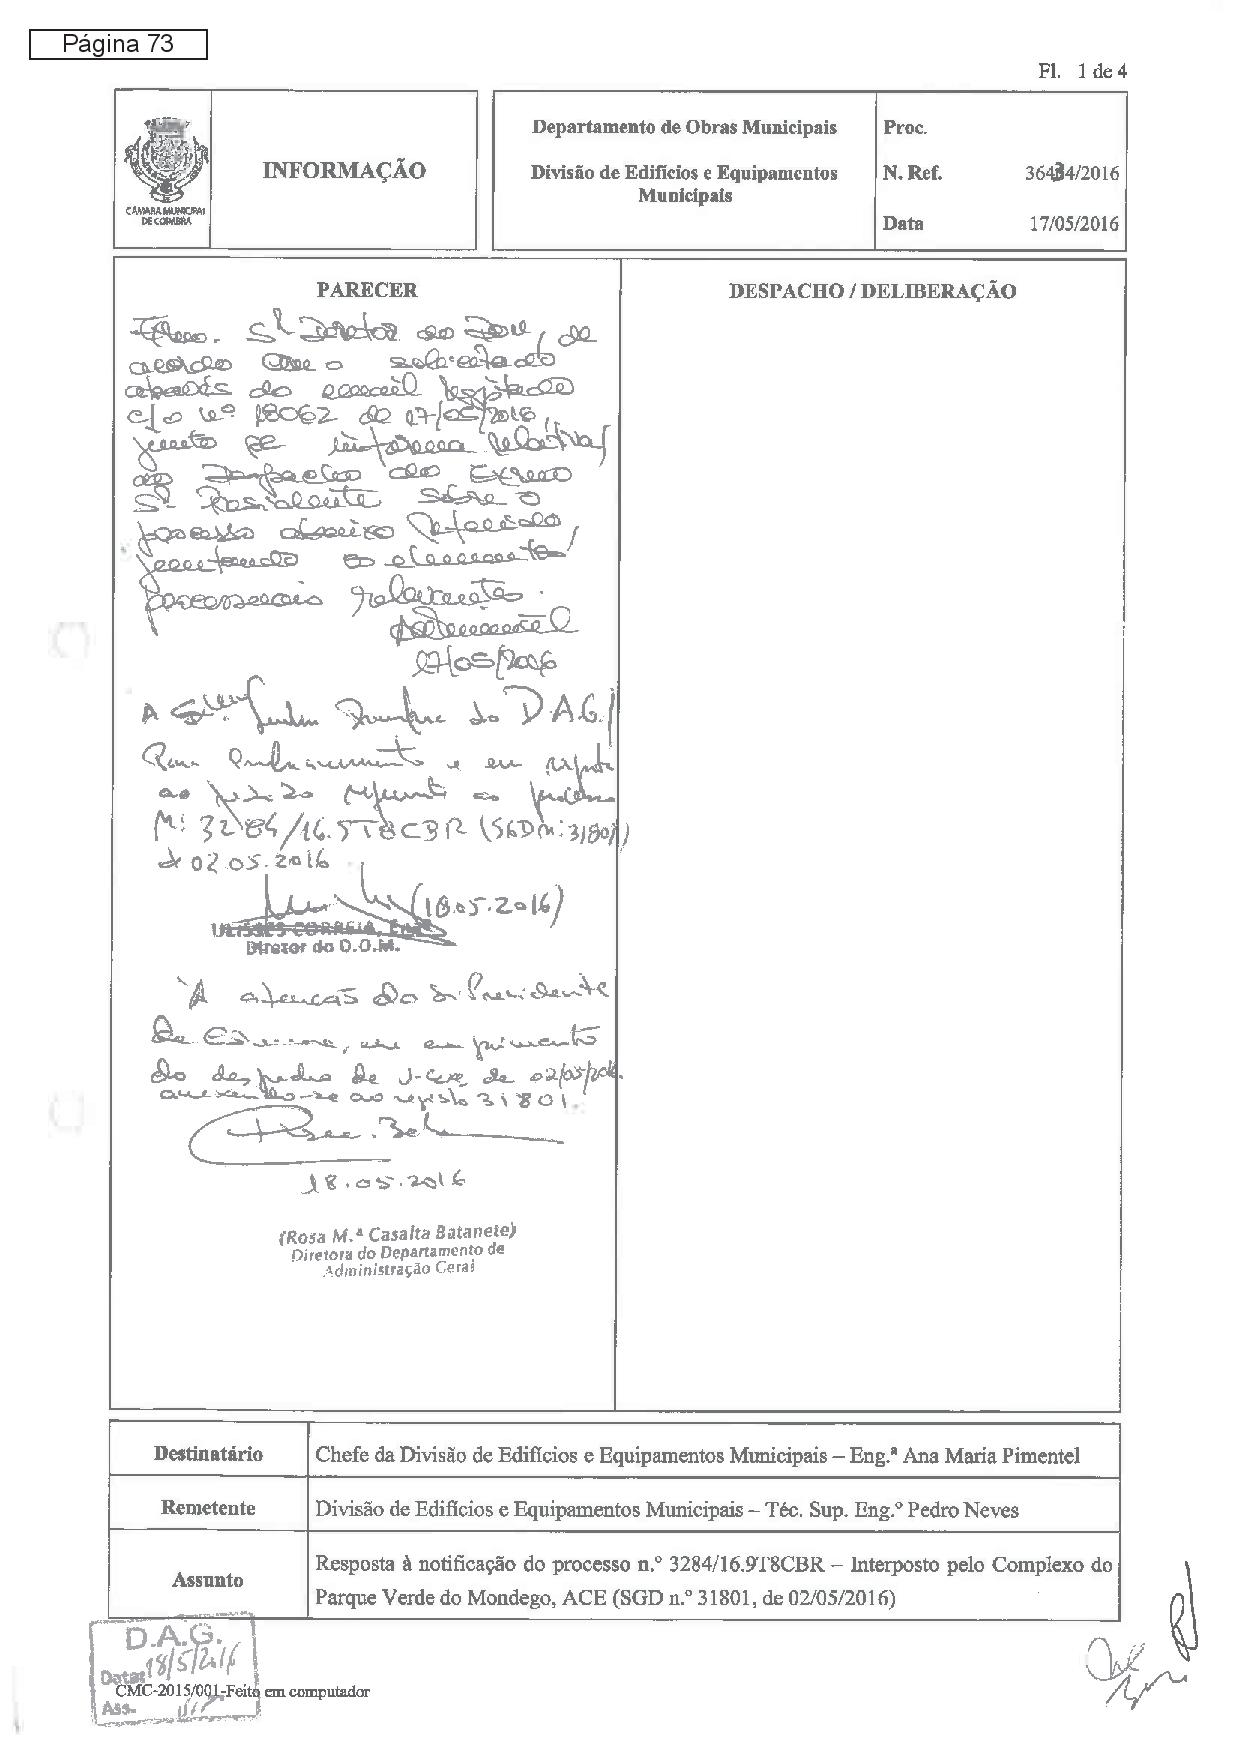 Página 73
Fl. 1 de 4
CÂMARA MUNICIPAL
DE COIMBRA
INFORMAÇÃO
Departamento de Obras Municipais
Divisão de Edifícios e Equipamentos
Municipais
Proc.
N. Ref. 36434/2016
Data 17/05/2016
PARECER
DESPACHO / DELIBERAÇÃO
Exmo. Sr. Diretor do DOM, de
acordo com o solicitado
através do email registado
c/ o nº 18062 de 17/05/2016,
junto se informa relativa
ao Despacho do Exmo
Sr. Presidente sobre o
processo abaixo referido,
juntando os elementos
processuais
17/05/2016
A Senhora do D.A.G.
Para encaminhamento e em resposta
ao referente ao processo
Nº 3284/16.5T8CBR (SGD nº 31801)
de 02.05.2016
(18.05.2016)
ULISSES CORREIA, Engº
Diretor do D.O.M.
À atenção do Sr. Presidente
da Câmara, em cumprimento
do despacho de V. Exª de 02/05/2016
anexando-se ao registo 31801.
18.05.2016
(Rosa M.ª Casalta Batanete)
Diretora do Departamento de
Administração Geral
Destinatário Chefe da Divisão de Edifícios e Equipamentos Municipais – Eng.ª Ana Maria Pimentel
Remetente Divisão de Edifícios e Equipamentos Municipais – Téc. Sup. Eng.º Pedro Neves
Assunto Resposta à notificação do processo n.º 3284/16.9T8CBR – Interposto pelo Complexo do
Parque Verde do Mondego, ACE (SGD n.º 31801, de 02/05/2016)
D.A.G.
Data: 18/5/2016
CMC-2015/001-Feito em computador
Ass.